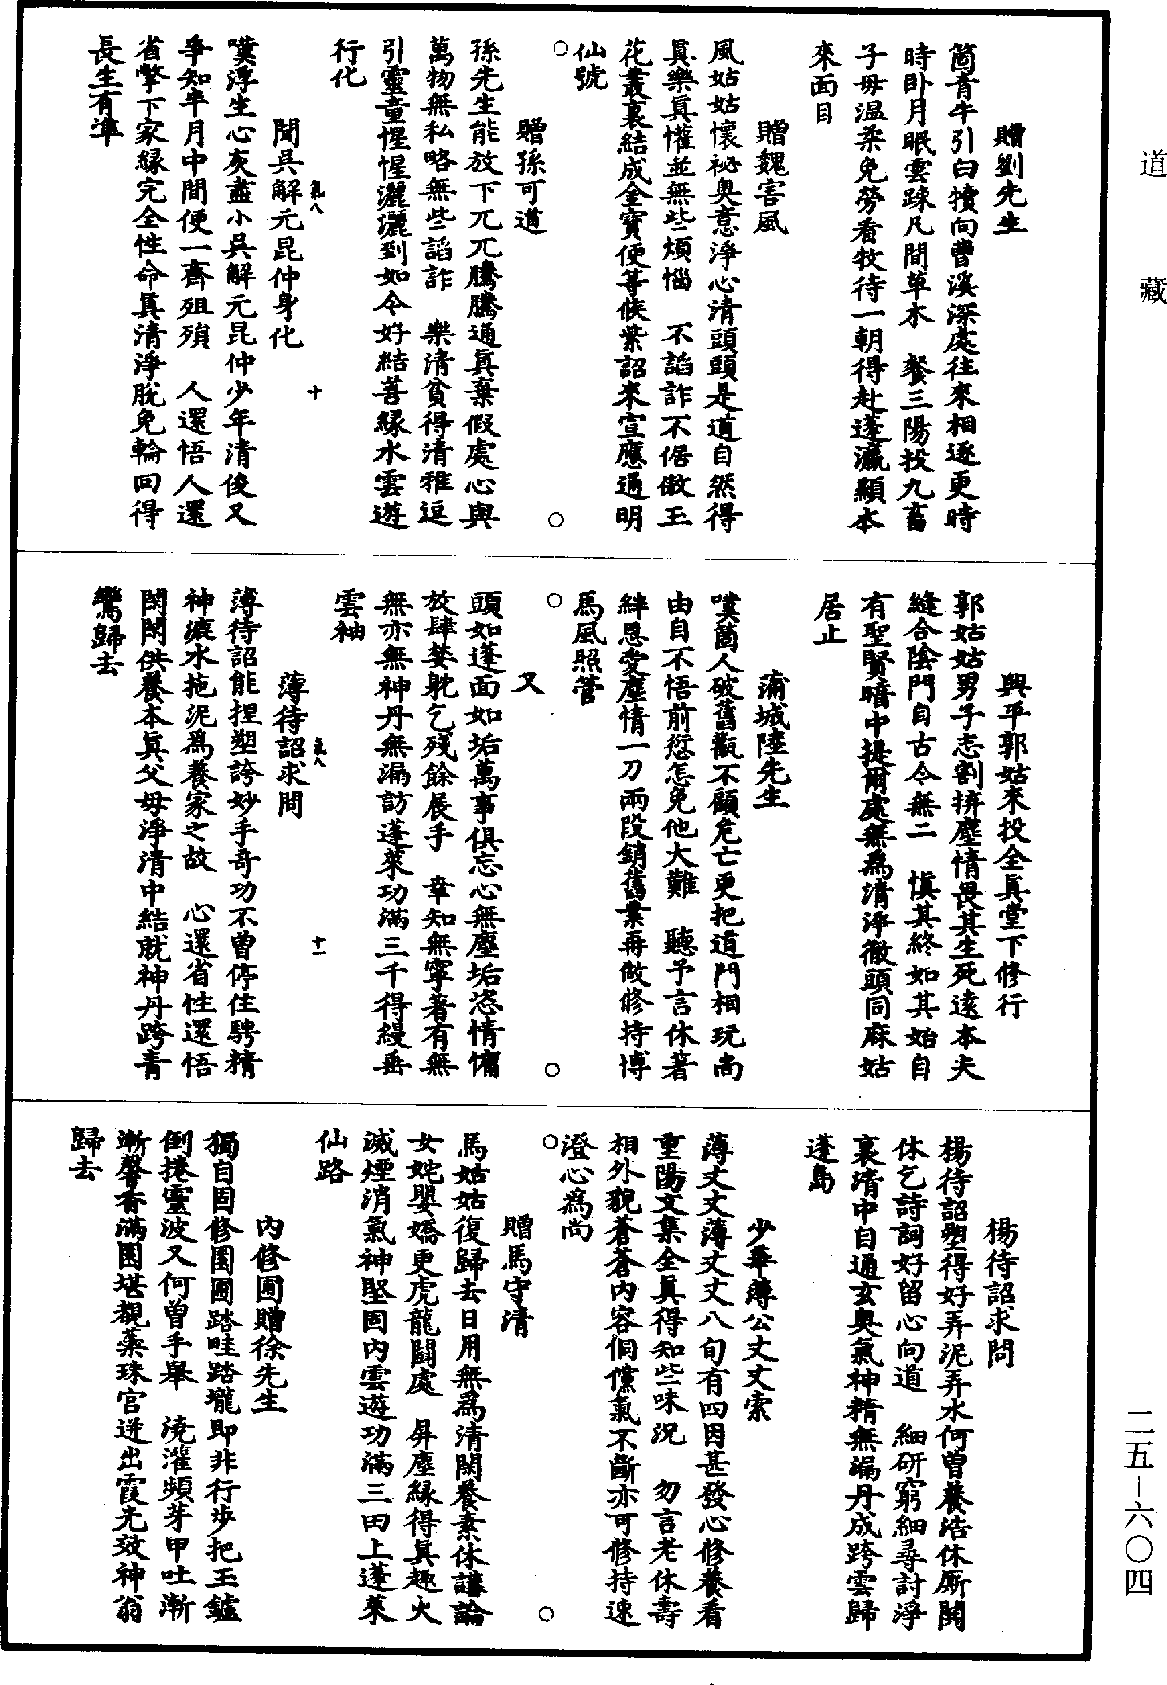 道藏
贈劉先生
箇青牛引白犢向曹溪深處往來相逐更時
時卧月眠雲疎凡間草木　餐三陽投九畜
子母温柔免勞看牧待一朝得赴蓬瀛顯本
來面目
贈魏害風
風姑姑懷祕奥意淨心清頭頭是道自然得
真樂真懽並無些煩惱　不謟詐不倨傲玉
花叢裏結成金寶便等候紫詔來宣應通明
仙號
贈孫可道
孫先生能放下兀兀騰騰通真棄假處心與
萬物無私略無些謟詐　樂清貧得清雅逗
引靈童惺惺灑灑到如今好結善緣水雲遊
行化
氣八
十
聞吳解元昆仲身化
嘆浮生心灰盡小吳解元昆仲少年清俊又
爭知半月中間便一齊殂殞　人還悟人還
省幣下家緣完全性命真清淨脫免輪回得
長生有準
興平郭姑來投全真堂下修行
郭姑姑男子志割捹塵情畏其生死遠本夫
縫合陰門自古今無二　慎其終如其始自
有聖賢暗中提爾處無爲清淨徹頭同麻姑
居止
蒲城陸先生
嘆箇人破舊觀不顧危亡更把道門相玩尚
由自不悟前愆怎免他大難　聽予言休著
絆恩愛塵情一刀兩段銷舊業再做修持博
馬風照管
又
頭如蓬面如垢萬事俱忘心無塵垢恣情慵
放肆婪躭乞殘餘展手　幸知無寧著有無
無亦無神丹無漏訪蓬萊功滿三千得縵垂
雲袖
氣八
十一
薄待詔求問
薄待詔能捏塑誇妙手奇功不曾停住騁精
神漉水拖泥爲養家之故　心還省性還悟
閑閑供養本真父母淨清中結就神丹跨青
鸞歸去
楊待詔求問
楊待詔塑得好弄泥弄水何曾養浩休厮鬭
休乞詩詞好留心向道　細研窮細尋討淨
裏清中自通玄奥氣神精無漏丹成跨雲歸
蓬島
少華薄公丈丈索
薄丈丈薄丈丈八旬有四因甚發心修養看
重陽文集全真得知些味況　勿言老休壽
相外貌蒼蒼内容倜儻氣不斷亦可修持速
澄心爲尚
贈馬守清
馬姑姑復歸去日用無爲清閑養素休讓論
女姹嬰嬌更虎龍鬭處　屏塵緣得真趣火
滅煙消氣神堅固内雲遊功滿三田上蓬萊
仙路
内修圃贈徐先生
獨自固修園圃踏畦踏壠即非行步把玉鑪
倒捲靈波又何曾手舉　澆灌頻芽甲吐漸
漸馨香滿園堪覩蘂珠宫迸出霞光效神翁
歸去
二五－六〇四